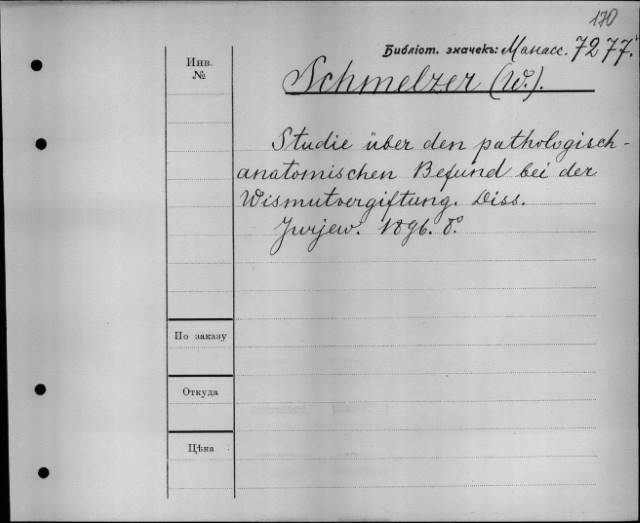 170
Библіот. значекъ: Манасс. 7277.
Инв.
№
Schmelzer (W.).
Studie über den pathologisch-
anatomischen Befund bei der
Wismutvergiftung. Diss.
Jurjew. 1896. 8°.
По заказу
Откуда
Цѣна